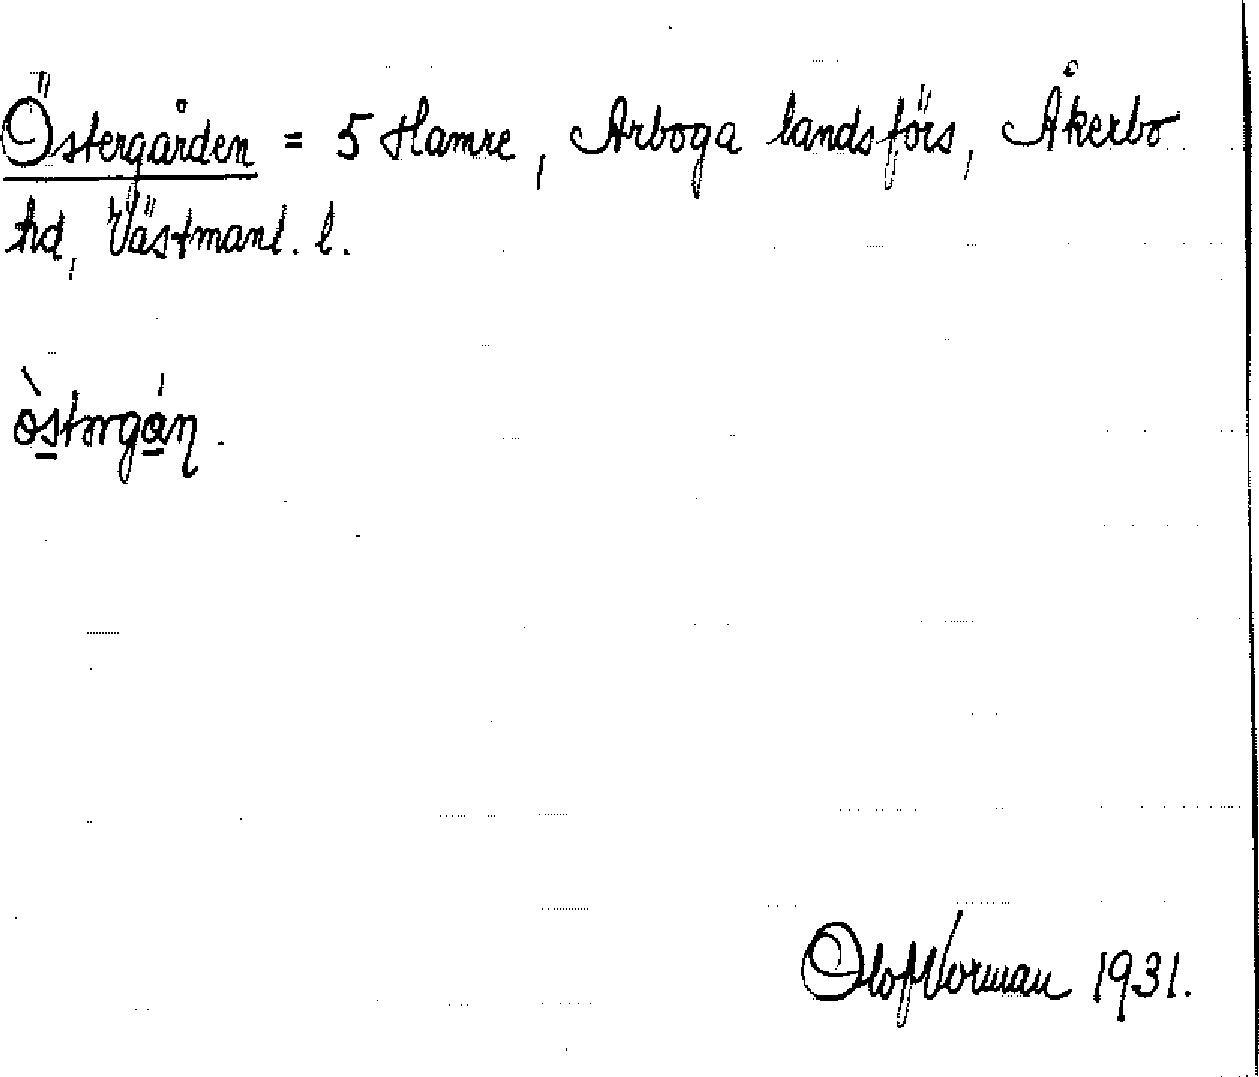 Östergården = 5 Hamre, Arboga landsförs, Åkerbo
hd, Västmanl. l.
òstərgán.
Olof Norman 1931.